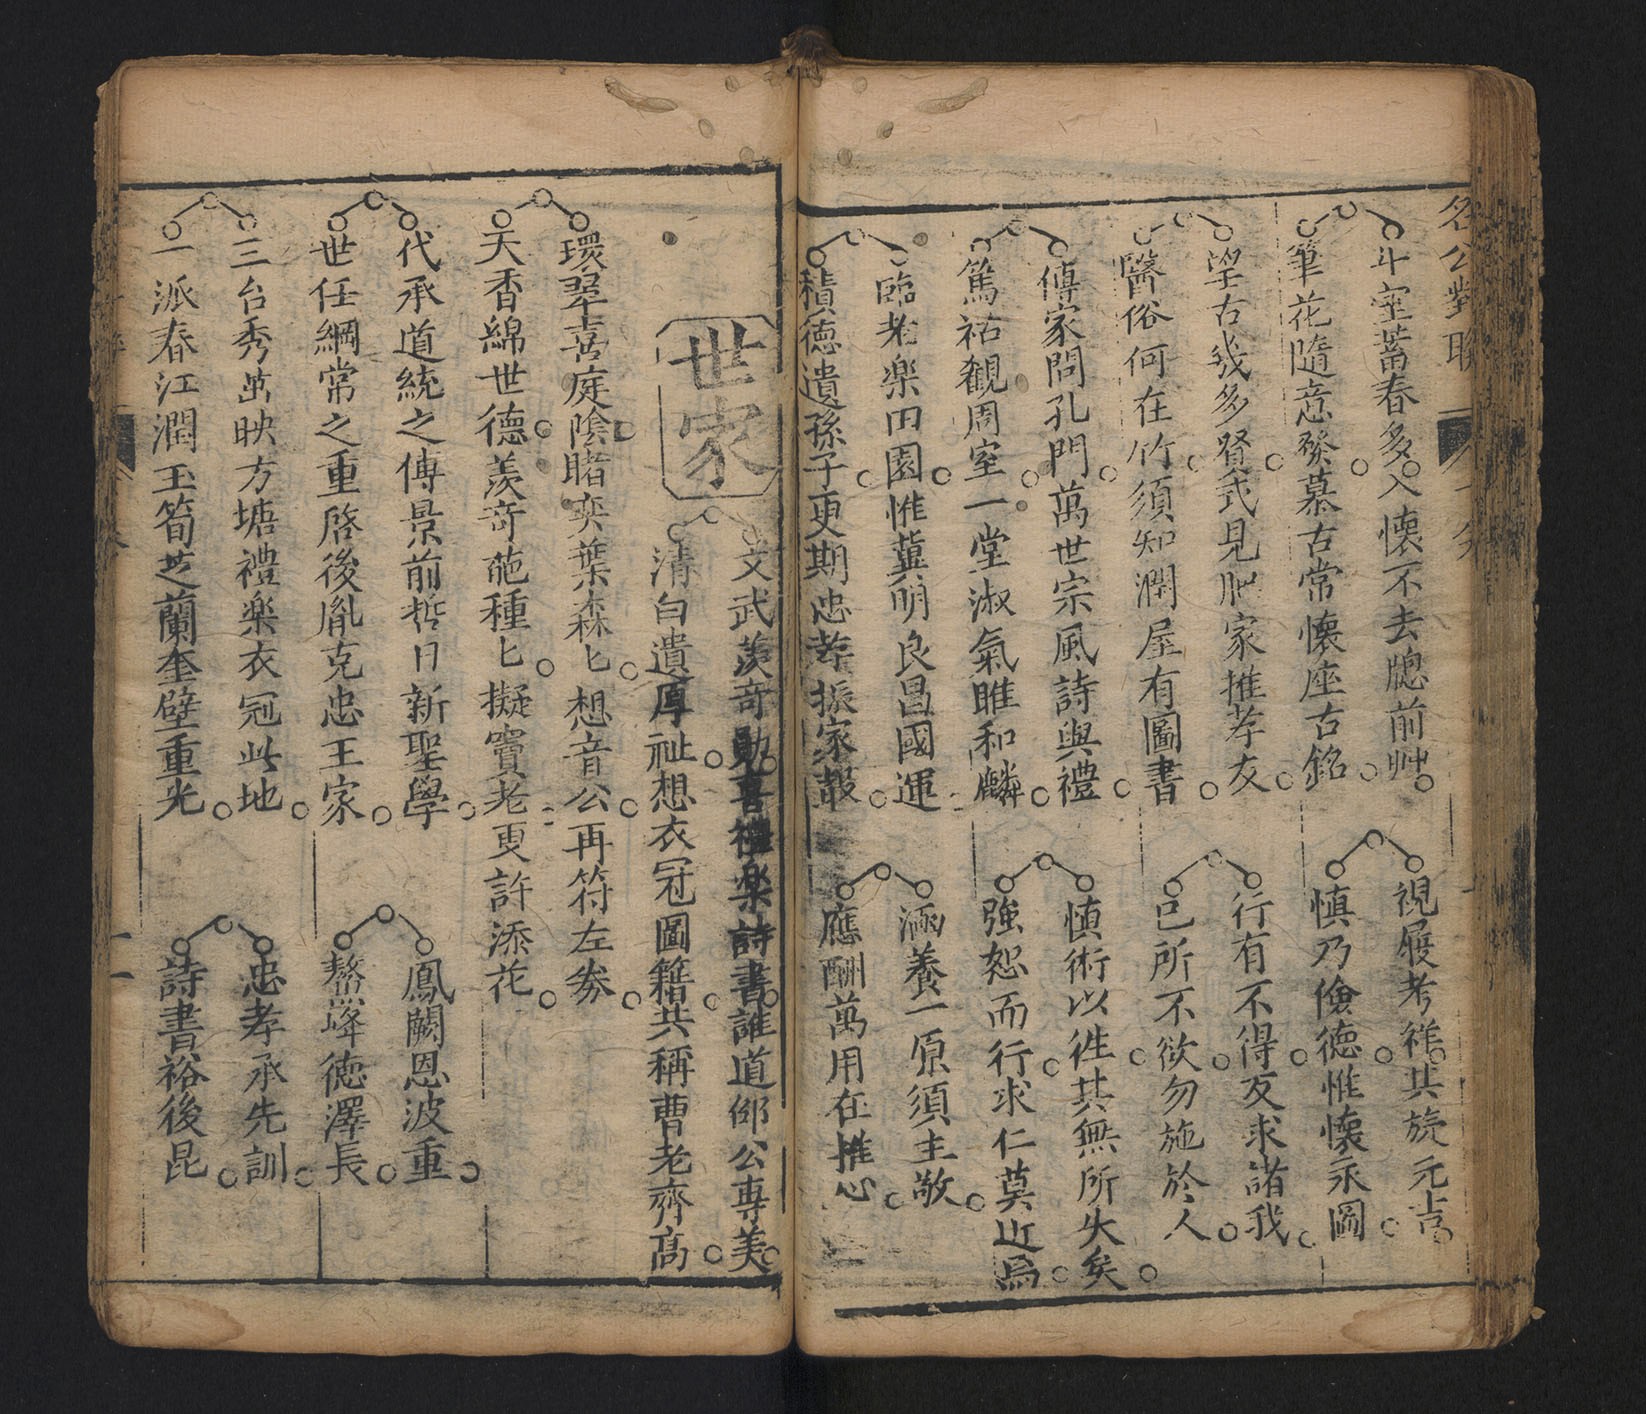 名公對聯
斗室蓄春多入懷不去牕前艸
筆花隨意發慕古常懷座古銘
視履考祥其旋元吉
慎乃儉德惟懷永圖
望古幾多賢式見肥家推孝友
醫俗何在竹須知潤屋有圖書
行有不得反求諸我
己所不欲勿施於人
傳家問孔門萬世宗風詩與禮
篤祜觀周室一堂淑氣雎和麟
慎術以往其無所失矣
強恕而行求仁莫近焉
臨老楽田園惟冀明良昌國運
積德遺孫子更期忠孝振家報
涵養一原須主敬
應酬萬用在推心
世家
文武羨奇勛喜禮楽詩書誰道邵公專美
清白遺厚祉想衣冠圖籍共稱曹老齊高
環翠喜庭陰睹奕葉森匕想音公再符左券
天香綿世德羨奇葩種匕擬竇老更許添花
代承道統之傳景前哲日新聖學
世任綱常之重啓後胤克忠王家
鳳闕恩波重
鰲峰德澤長
三台秀出映方塘禮楽衣冠此地
一派春江潤玉筍芝蘭奎壁重光
忠孝承先訓
詩書裕後昆